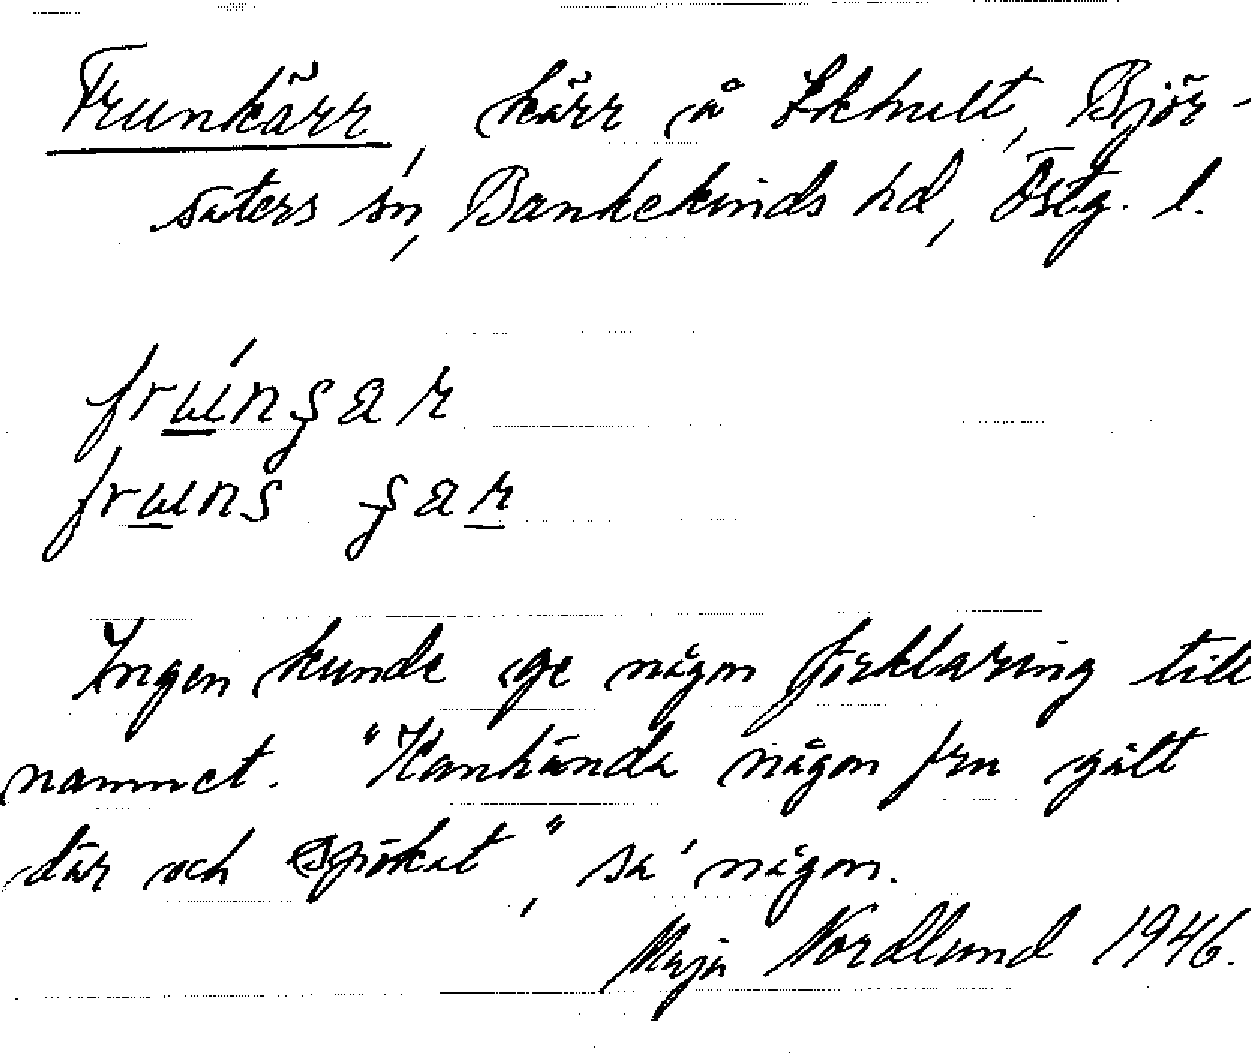 Frunkärr, kärr å Ekhult, Björ-
säters sn, Bankekinds hd, Östg. l.
Ingen kunde ge någon förklaring till
namnet. "Kanhända någon fru gått
där och spökat", sa' någon.
Maja Nordlund 1946.